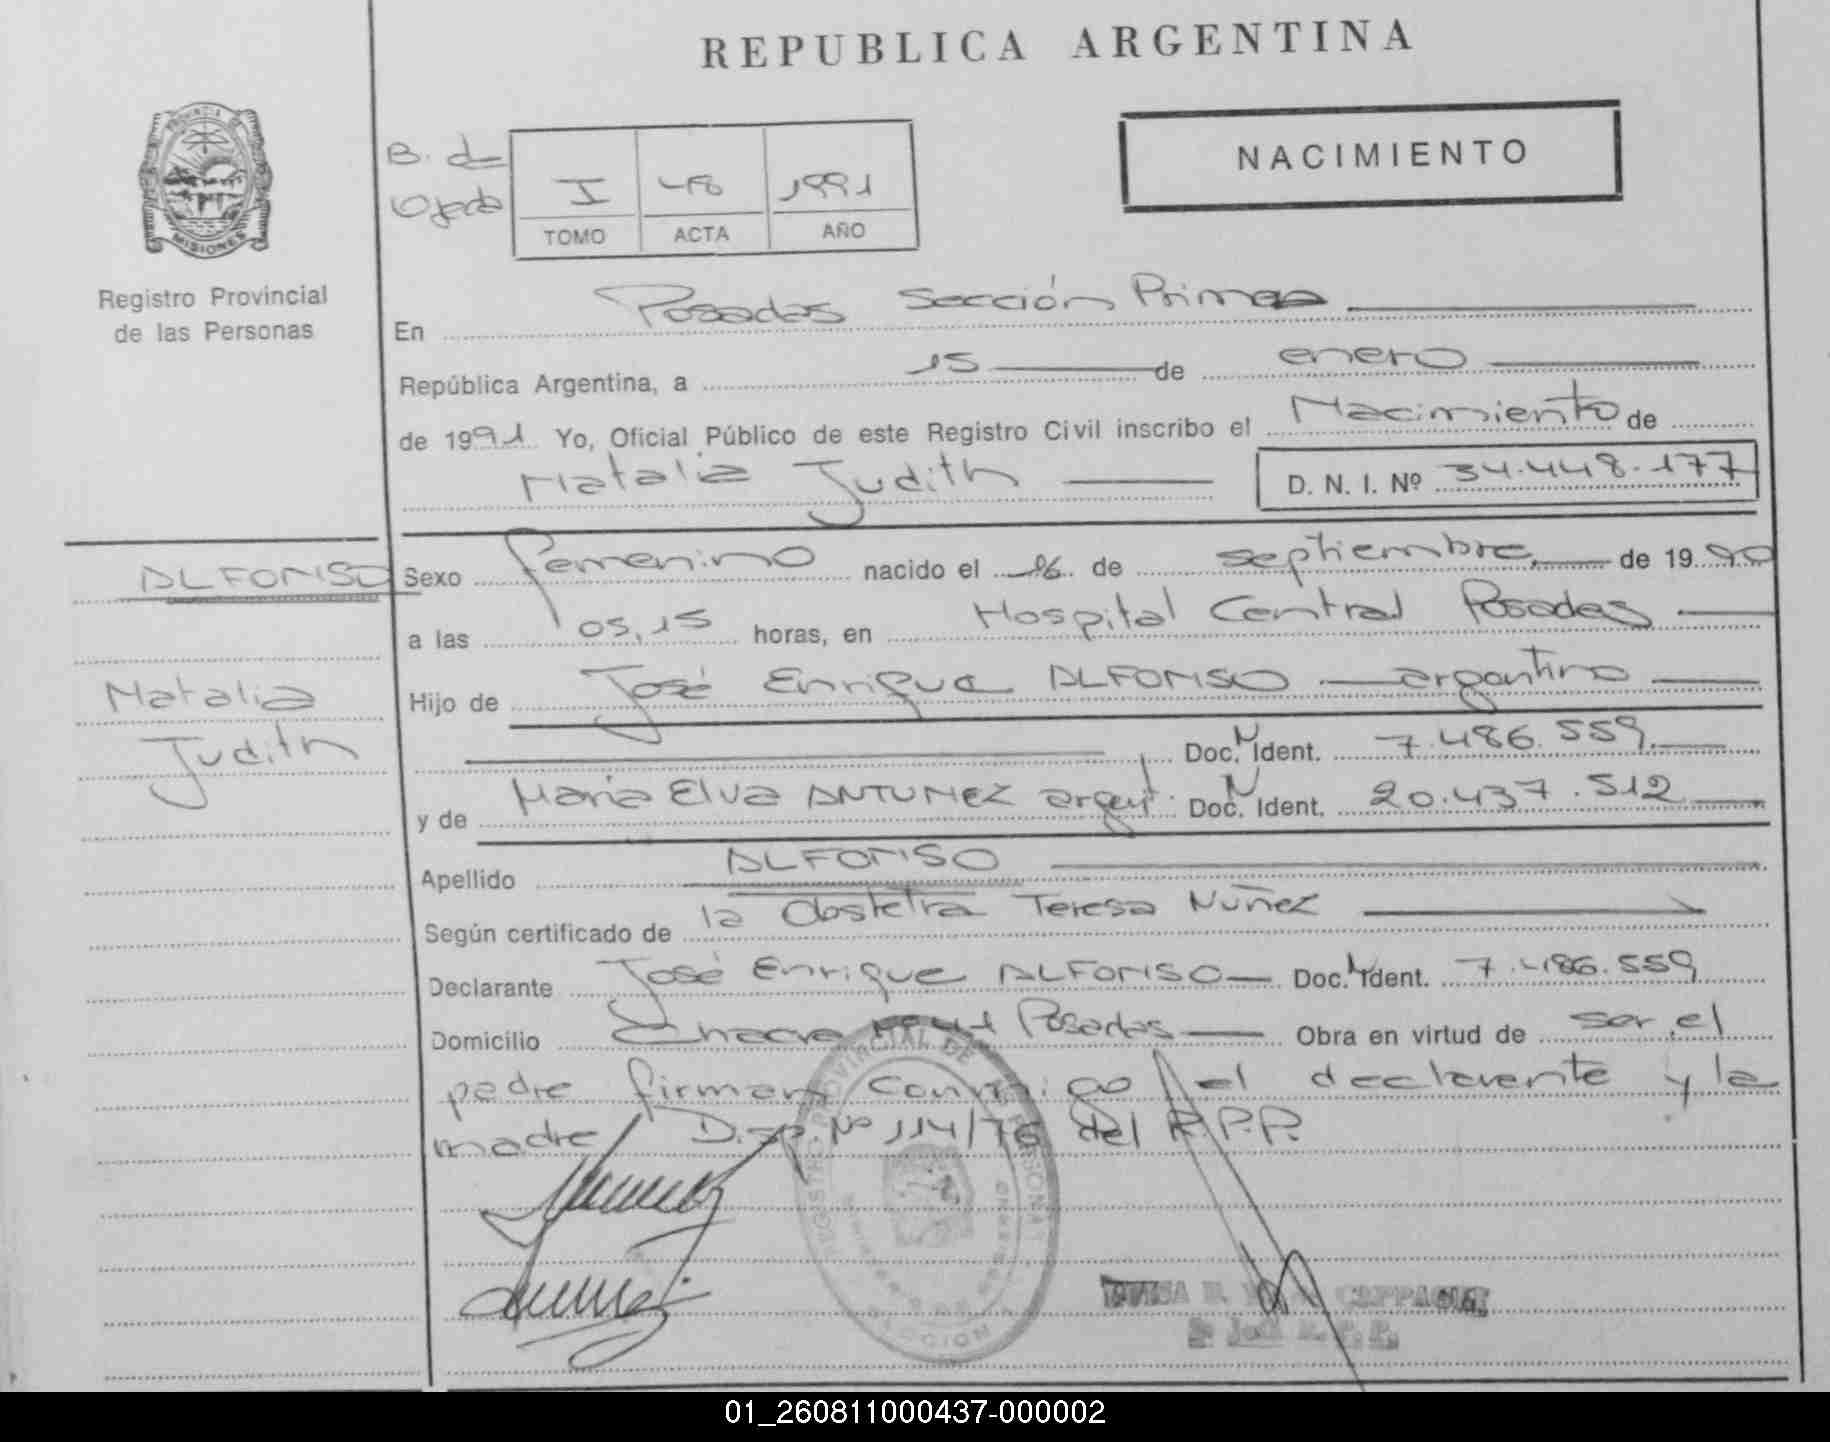 REPUBLICA ARGENTINA
NACIMIENTO
B. de
Ojeda
I 48 1991
TOMO ACTA AÑO
PROVINCIA DE
MISIONES
Registro Provincial
de las Personas
En Posadas Sección Primera
República Argentina, a 15 de enero
de 1991 Yo, Oficial Público de este Registro Civil inscribo el Nacimiento de
Natalia Judith D. N. I. Nº 34.448.177
ALFONSO
Natalia
Judith
Sexo femenino nacido el 26 de septiembre de 1990
a las 05,15 horas, en Hospital Central Posadas
Hijo de José Enrique ALFONSO argentino
Doc. N Ident. 7.486.559
y de Maria Elva ANTUNEZ argent. Doc. N Ident. 20.437.512
Apellido ALFONSO
Según certificado de la Obstetra Teresa Nuñez
Declarante José Enrique ALFONSO Doc. N Ident. 7.486.559
Domicilio Chacra Posadas Obra en virtud de ser el
padre firman conmigo el declarante y la
madre Disp Nº 114/76 del R.P.P.
REGISTRO PROVINCIAL DE PERSONAS
01_260811000437-000002